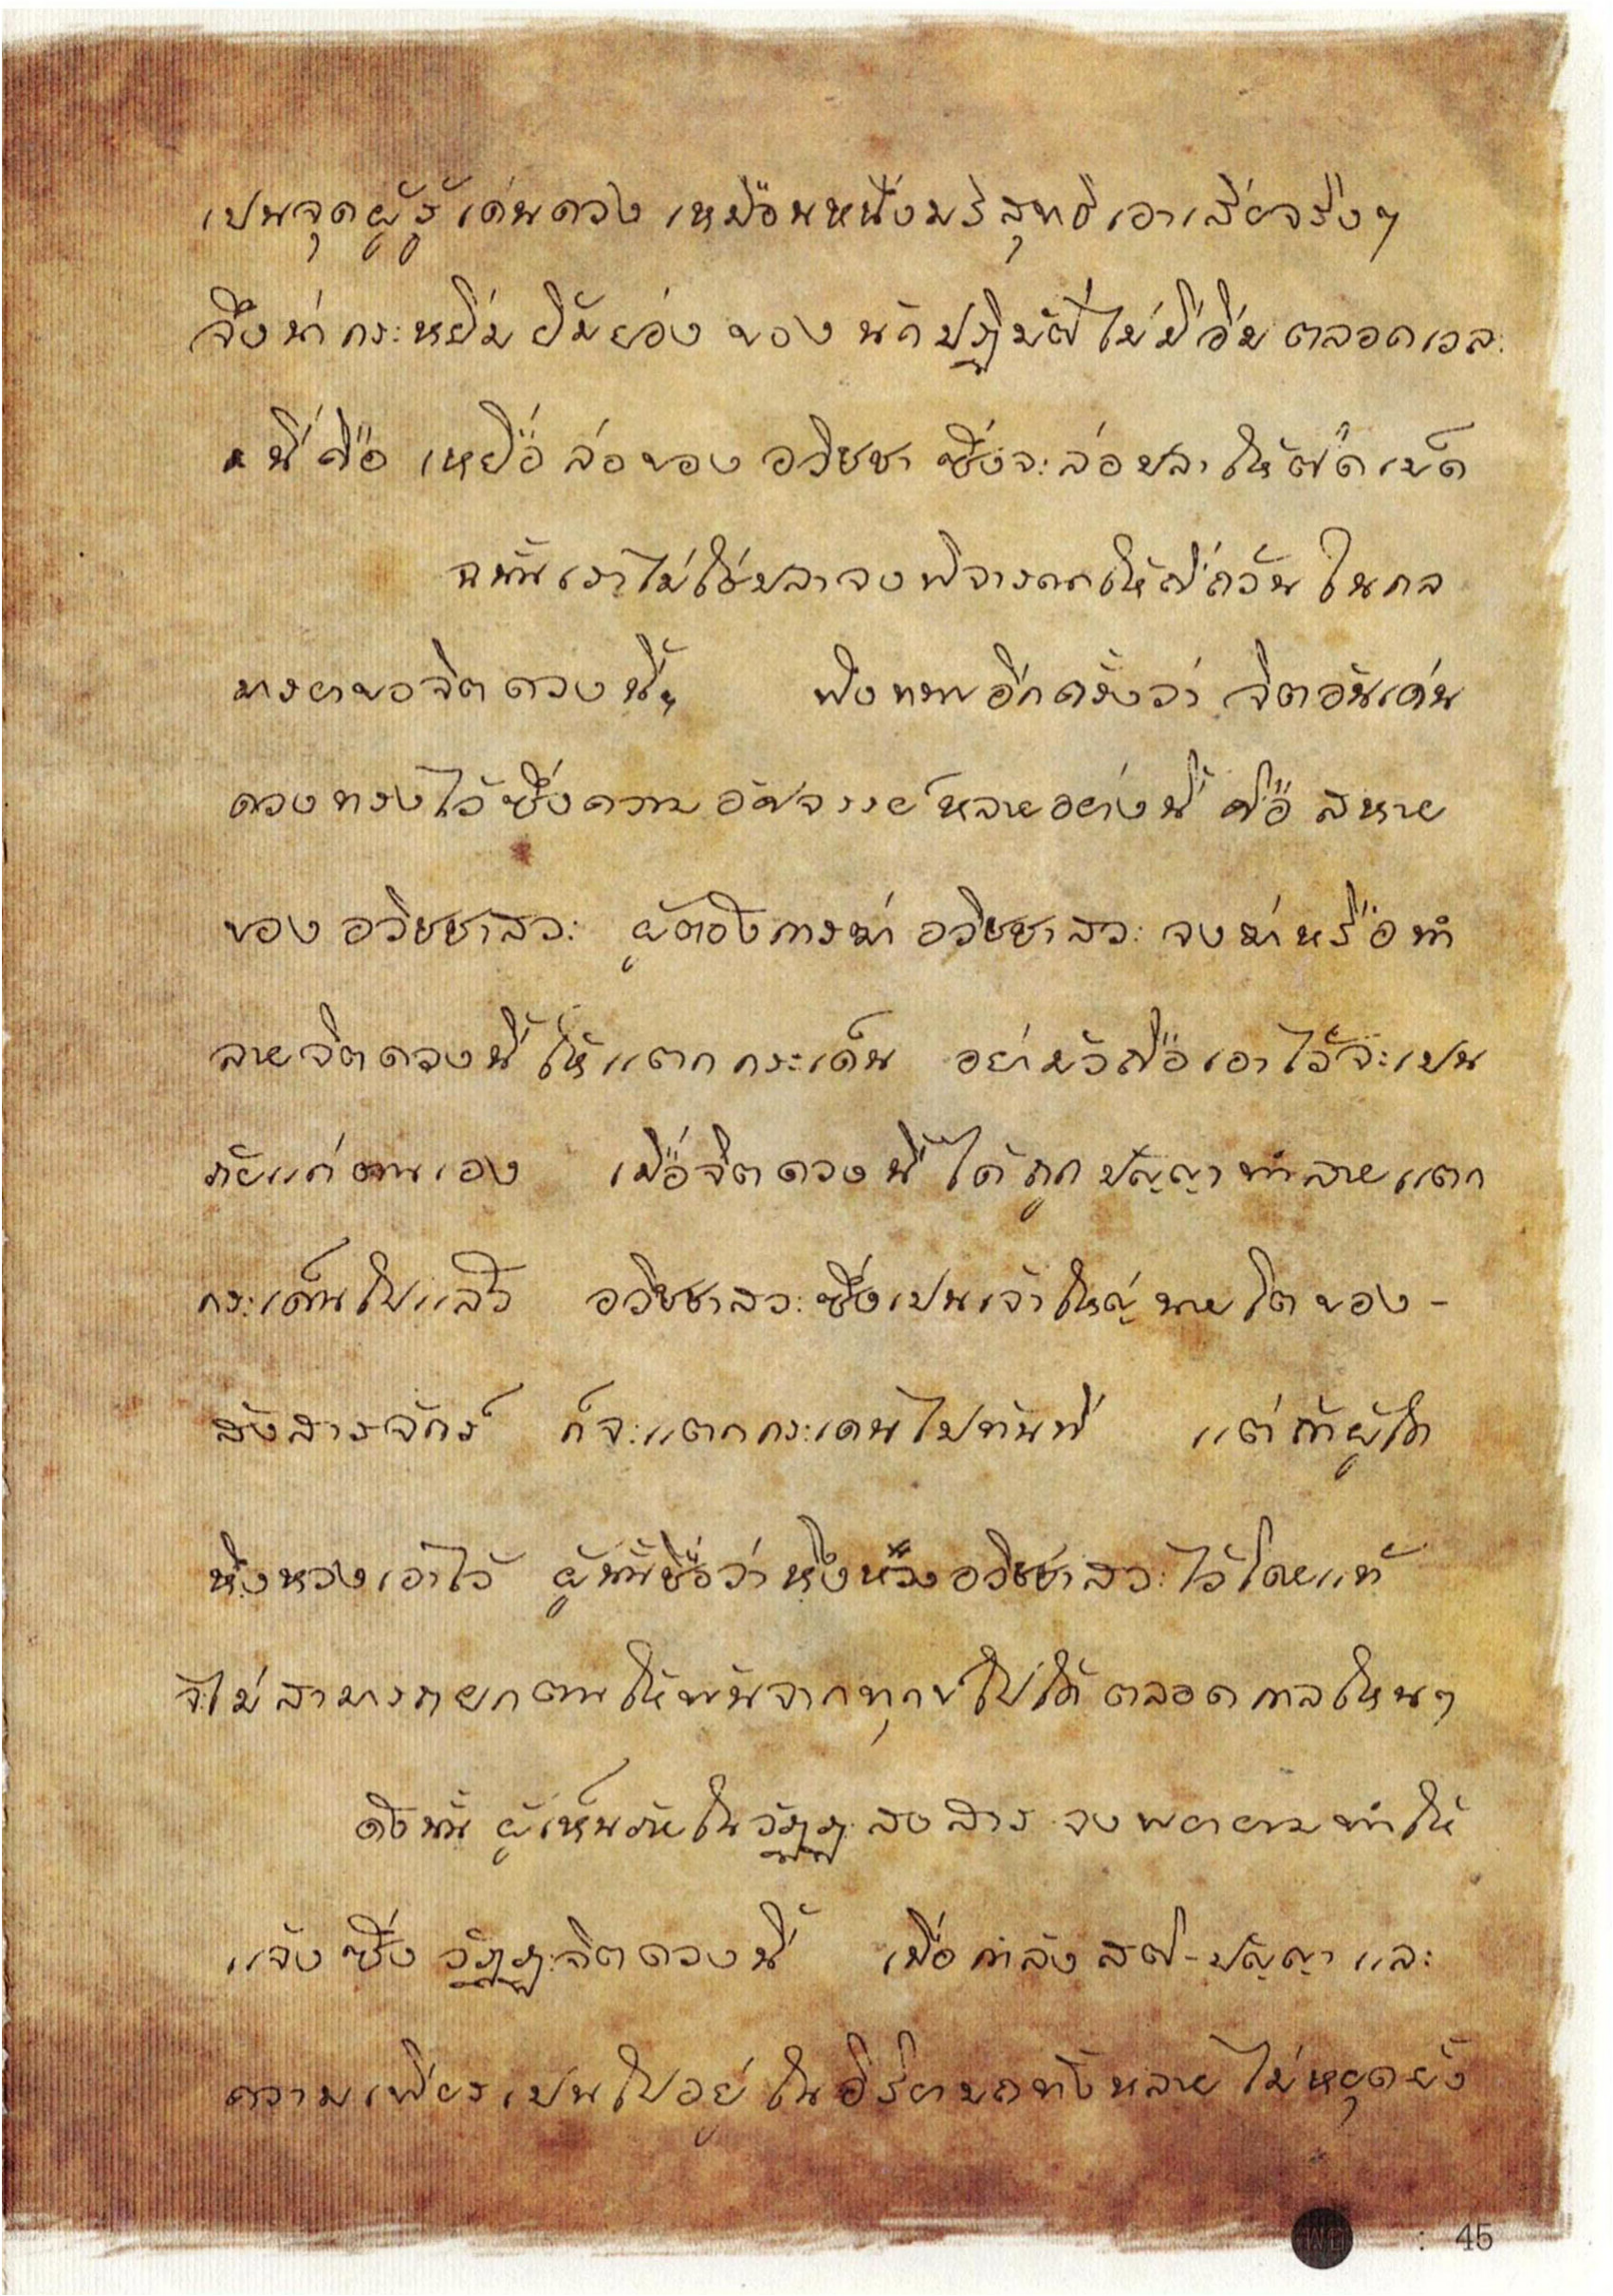 เปนจุดผู้รู้เด่นดวง เหมือนหนึ่งบริสุทธิเอาเสียจริงๆ
จึงน่ากระหยิ่มยิ้มย่อง ของนักปฏิบัติไม่มีอิ่มตลอดเวละ
นี่คือ เหยื่อล่อของอวิชชา ซึ่งจะล่อปลาให้ติดเบ็ด
ฉนั้นเราไม่ใช่ปลาจงพิจารณาให้ถี่ถ้วนในกล
มารยาของจิตดวงนี้ๆ ฟังทราบอีกครั้งว่า จิตอันเด่น
ดวงทรงไว้ซึ่งความอัศจรรย์หลายอย่างนี้ คือ สหาย
ของอวิชชาสวะ ผู้ต้องการฆ่าอวิชชาสวะ จงฆ่าหรือทำ
ลายจิตดวงนี้ให้แตกกระเด็น อย่ามัวถือเอาไว้จะเปน
ภัยแก่ตนเอง เมื่อจิตดวงนี้ได้ถูกปัญญาทำลายแตก
กระเด็นไปแล้ว อวิชชาสวะซึ่งเปนเจ้าใหญ่นายโตของ-
สังสารจักร์ ก็จะแตกกระเดนไปทันที แต่ถ้าผู้ใด
หึงหวงเอาไว้ ผู้นั้นชื่อว่าหึงหวงอวิชชาสวะไว้โดยแท้
จะไม่สามารถยกตนให้พ้นจากทุกข์ไปได้ตลอดกาลไหนๆ
ดังนั้น ผู้เห็นภัยในวัฏฏะสงสาร จงพยายามทำให้
แจ้งซึ่งวัฏฏะจิตดวงนี้ เมื่อกำลังสติ-ปัญญา และ
ความเพียรเปนไปอยู่ในอิริยาบถทั้งหลายไม่หยุดยั้ง
: 45